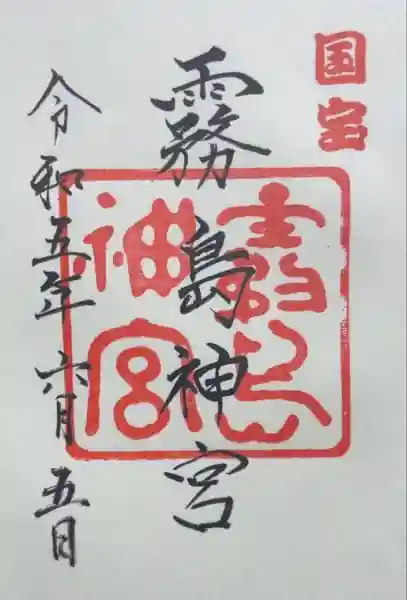 国宝
霧島神宮
霧島神宮
令和五年六月五日